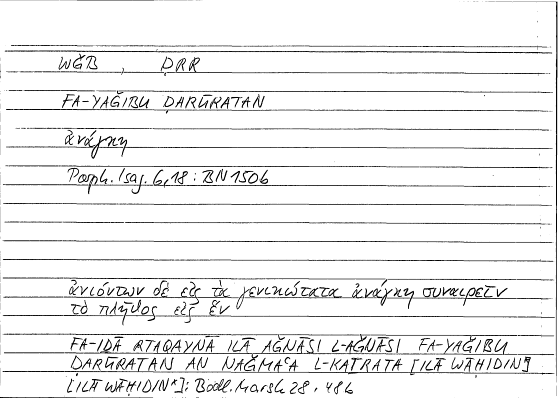 WĞB , ḌRR
FA-YAĞIBU ḌARŪRATAN
ἀνάγκη
Porph. Isag. 6,18 : BN 150b
ἀνιόντων δὲ εἰς τὰ γενικώτατα ἀνάγκη συναιρεῖν
τὸ πλῆθος εἰς ἕν
FA-IḎĀ RTAQAYNĀ ILĀ AĞNĀSI L-AĞNĀSI FA-YAĞIBU
ḌARŪRATAN AN NAĞMAʿA L-KAṮRATA [ILĀ WĀḤIDIN*]
[ILĀ WĀḤIDIN*]: Bodl. Marsh 28, 48b